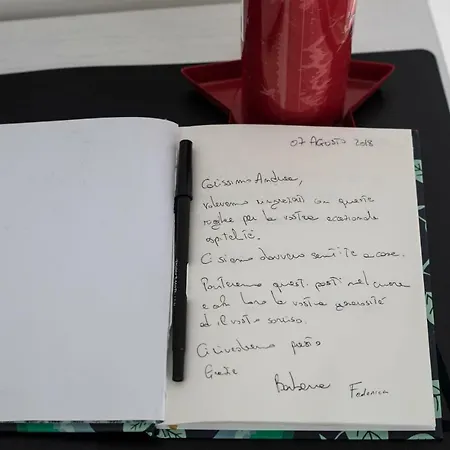 07 AGOSTO 2018
Carissimo Andrea,
volevamo ringraziarvi con queste
righe per la vostra eccezionale
ospitalità.
Ci siamo davvero sentite a casa.
Porteremo questi posti nel cuore
e la vostra generosità
ed il vostro sorriso.
Ci rivedremo presto
Grazie
Barbara Federica